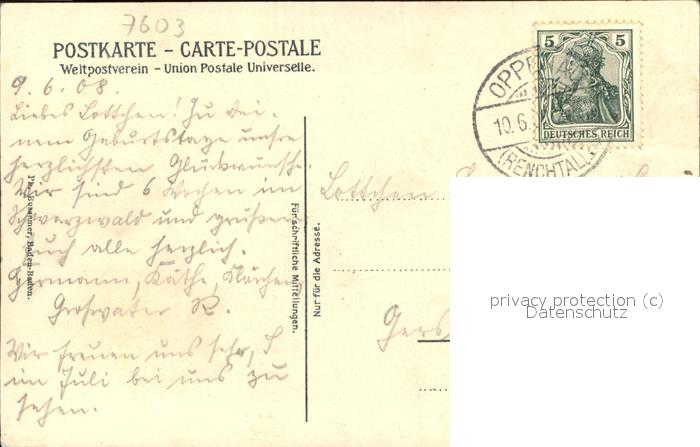 7603
POSTKARTE – CARTE-POSTALE
Weltpostverein – Union Postale Universelle.
9. 6. 08.
Liebes Lottchen! Zu dei-
nem Geburtstage unsre
herzlichsten Glückwünsche.
Wir sind 6 Wochen im
Schwarzwald und grüßen
Euch alle herzlich.
Hermann, Käthe, Klärchen
Grosvater R.
Wir freuen uns sehr,
im Juli bei uns zu
sehen.
Bussemer, Baden-Baden.
Für schriftliche Mitteilungen.
Nur für die Adresse.
5 5
DEUTSCHES REICH
OPPE
10.6.
(RENCHTAL)
Lottchen
Gers
privacy protection (c)
Datenschutz